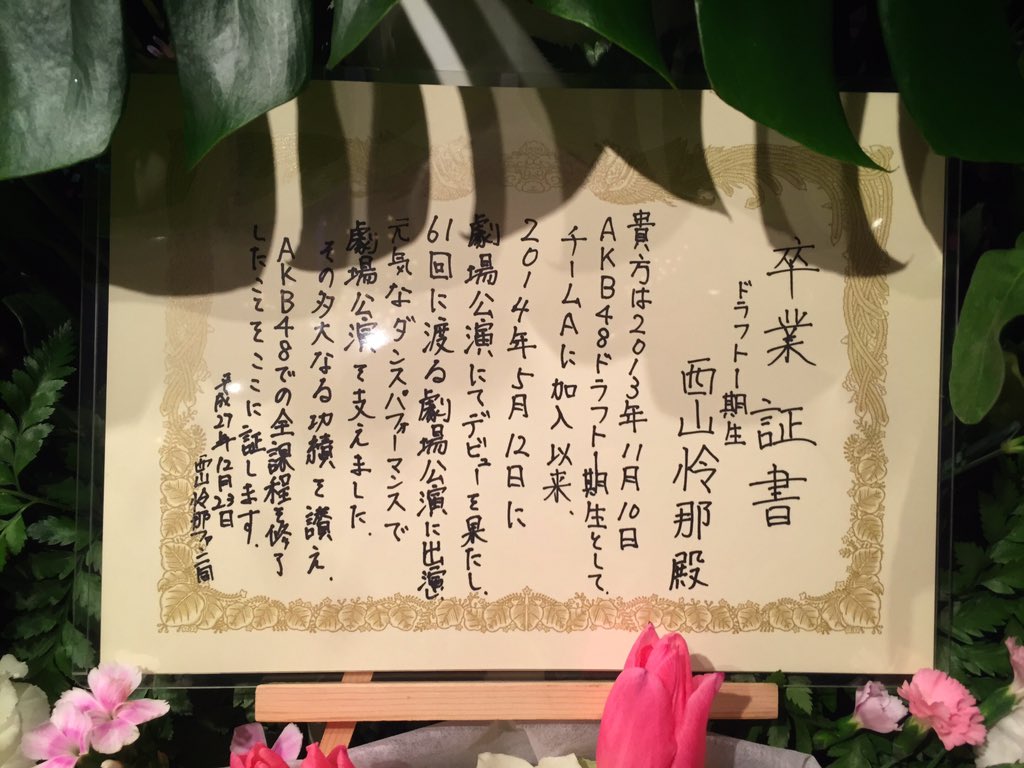 卒業証書
ドラフト一期生
西山怜那殿
貴方は2013年11月10日
AKB48ドラフト一期生として、
チームAに加入以来、
2014年5月12日に
劇場公演にてデビューを果たし、
61回に渡る劇場公演に出演
元気なダンスパフォーマンスで
劇場公演を支えました。
その多大なる功績を讃え、
AKB48での全課程を修了
したことをここに証します。
平成27年12月23日
西山怜那ファン一同